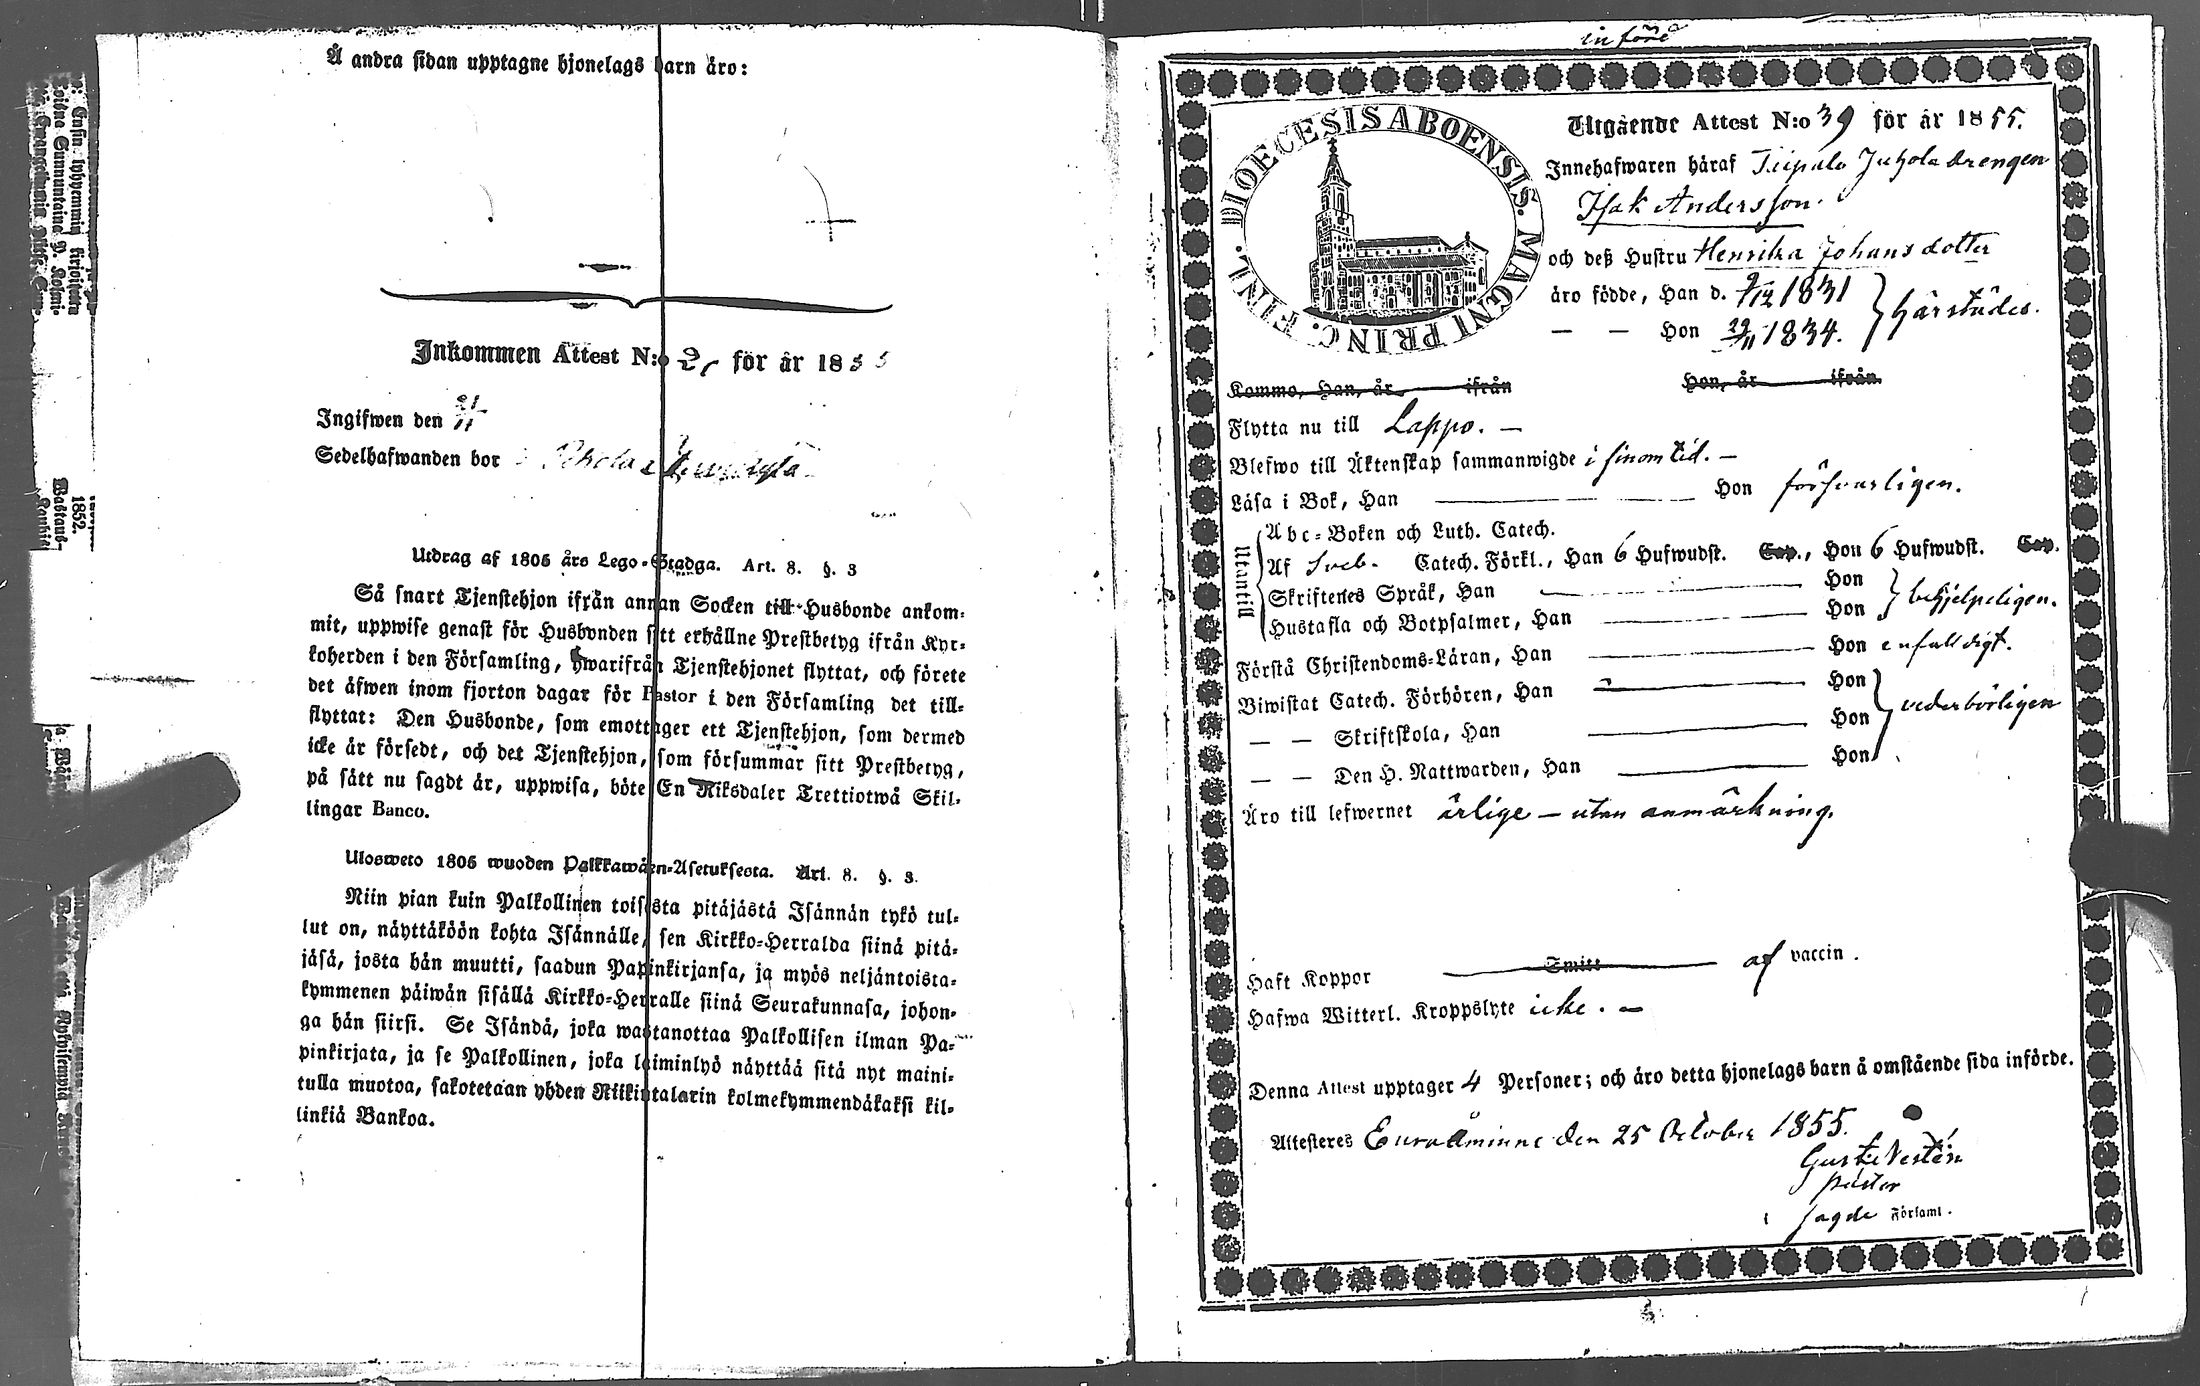 Å andra sidan upptagne hjonelags barn äro:
Inkommen Attest N:o för år 1855
Ingifwen den
Sedelhafwanden bor
Utdrag af 1805 års Lego-Stadga. Art. 8. §. 3
Så snart Tjenstehjon ifrån annan Socken till Husbonde ankom-
mit, uppwise genast för Husbonden sitt erhållne Prestbetyg ifrån Kyr-
koherden i den Församling, hwarifrån Tjenstehjonet flyttat, och förete
det äfwen inom fjorton dagar för Pastor i den Församling det till-
flyttat: Den Husbonde, som emottager ett Tjenstehjon, som dermed
icke är försedt, och det Tjenstehjon, som försummar sitt Prestbetyg,
på sätt nu sagdt är, uppwisa, böte En Riksdaler Trettiotwå Skil-
lingar Banco.
Ulosweto 1805 wuoden Palkkawäen-Asetuksesta. Art. 8. §. 3.
Niin pian kuin Palkollinen toisesta pitäjästä Isännän tykö tul-
lut on, näyttäköön kohta Isännälle, sen Kirkko-Herralda siinä pitä-
jäsä, josta hän muutti, saadun Papinkirjansa, ja myös neljäntoista-
kymmenen päiwän sisällä Kirkko-Herralle siinä Seurakunnasa, johon-
ga hän siirsi. Se Isändä, joka wastanottaa Palkollisen ilman Pa-
pinkirjata, ja se Palkollinen, joka laiminlyö näyttää sitä nyt maini-
tulla muotoa, sakotetaan yhden Riikintalarin kolmekymmendäkaksi kil-
linkiä Bankoa.
1852.
införe
DIOECESIS ABOENSIS. MAGNI PRINC. FINL.
Utgående Attest N:o 39 för år 1855.
Innehafwaren häraf Juhola drengen
Isak Andersson.
och deß Hustru Henrika Johansdotter
äro födde, Han d. 9/12 1831
— — Hon 29/11 1834. } härstädes.
Komme, Han, år ifrån Hon, år ifrån
Flytta nu till Lappo. —
Blefwo till Äktenskap sammanwigde i sinom tid. —
Läsa i Bok, Han — Hon försvarligen.
Utantill
Abc-Boken och Luth. Catech.
Af Sveb. Catech. Förkl., Han 6 Hufwudst. Cap., Hon 6 Hufwudst. Cap.
Skriftenes Språk, Han — Hon
Hustafla och Botpsalmer, Han — Hon } behjelpeligen.
Förstå Christendoms-Läran, Han — Hon enfaldigt.
Biwistat Catech. Förhören, Han — Hon
— — Skriftskola, Han — Hon } vederbörligen
— — Den H. Nattwarden, Han — Hon
Äro till lefwernet ärlige — utan anmärkning.
Haft Koppor Smitt af vaccin.
Hafwa Witterl. Kroppslyte icke. —
Denna Attest upptager 4 Personer; och äro detta hjonelags barn å omstående sida införde.
Attesteres Euraåminne den 25 October 1855.
Gust. Nestén
pastor
i sagde Församl.